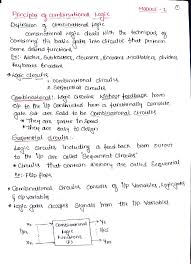 Principles of combinational Logic
Module - 2
Definition of combinational Logic
Combinational logic deals with the techniques of
combining the basic gates into circuits that perform
some desired functions.
Ex: Adders, Subtractors, decoders, Encoders, Multipliers, dividers,
keyboard Encoders
Logic circuits
- combinational circuits
- Sequential circuits
Combinational: Logic circuits without feedback from
O/P to the I/P constructed from a functionally complete
gate set, are said to be combinational circuits
They are faster in Speed
They are easy to design
Sequential circuits
Logic Circuits including a feedback from output
to the I/P are called "Sequential circuits"
Circuits that contain memory are called Sequential
Ex: Flip flops
Combinational Circuits consists of I/p Variables, Logic gates
& O/p variables
Logic gates accepts Signals from the I/p
Combinational
Logic
Functions